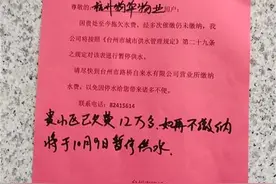 尊敬的：杭州翔华物业用户：
因贵处至今拖欠水费，经多次催缴仍未缴纳，我
公司将按照《台州市城市供水管理规定》第二十九条
之规定对该表进行暂停供水。
请尽快到台州市路桥自来水有限公司营业所缴纳
水费，以免因停水给您带来诸多不便。
联系电话：82415614
贵小区已欠费12万多，如再不缴纳
将于10月9日暂停供水．